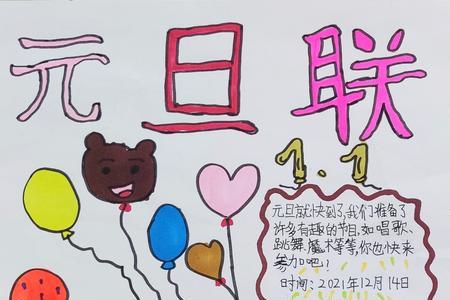 元旦联
1.1
元旦就快到了,我们准备了
许多有趣的节目,如唱歌、
跳舞、魔术等等,你也快来
参加吧!!
时间:2021年12月14日